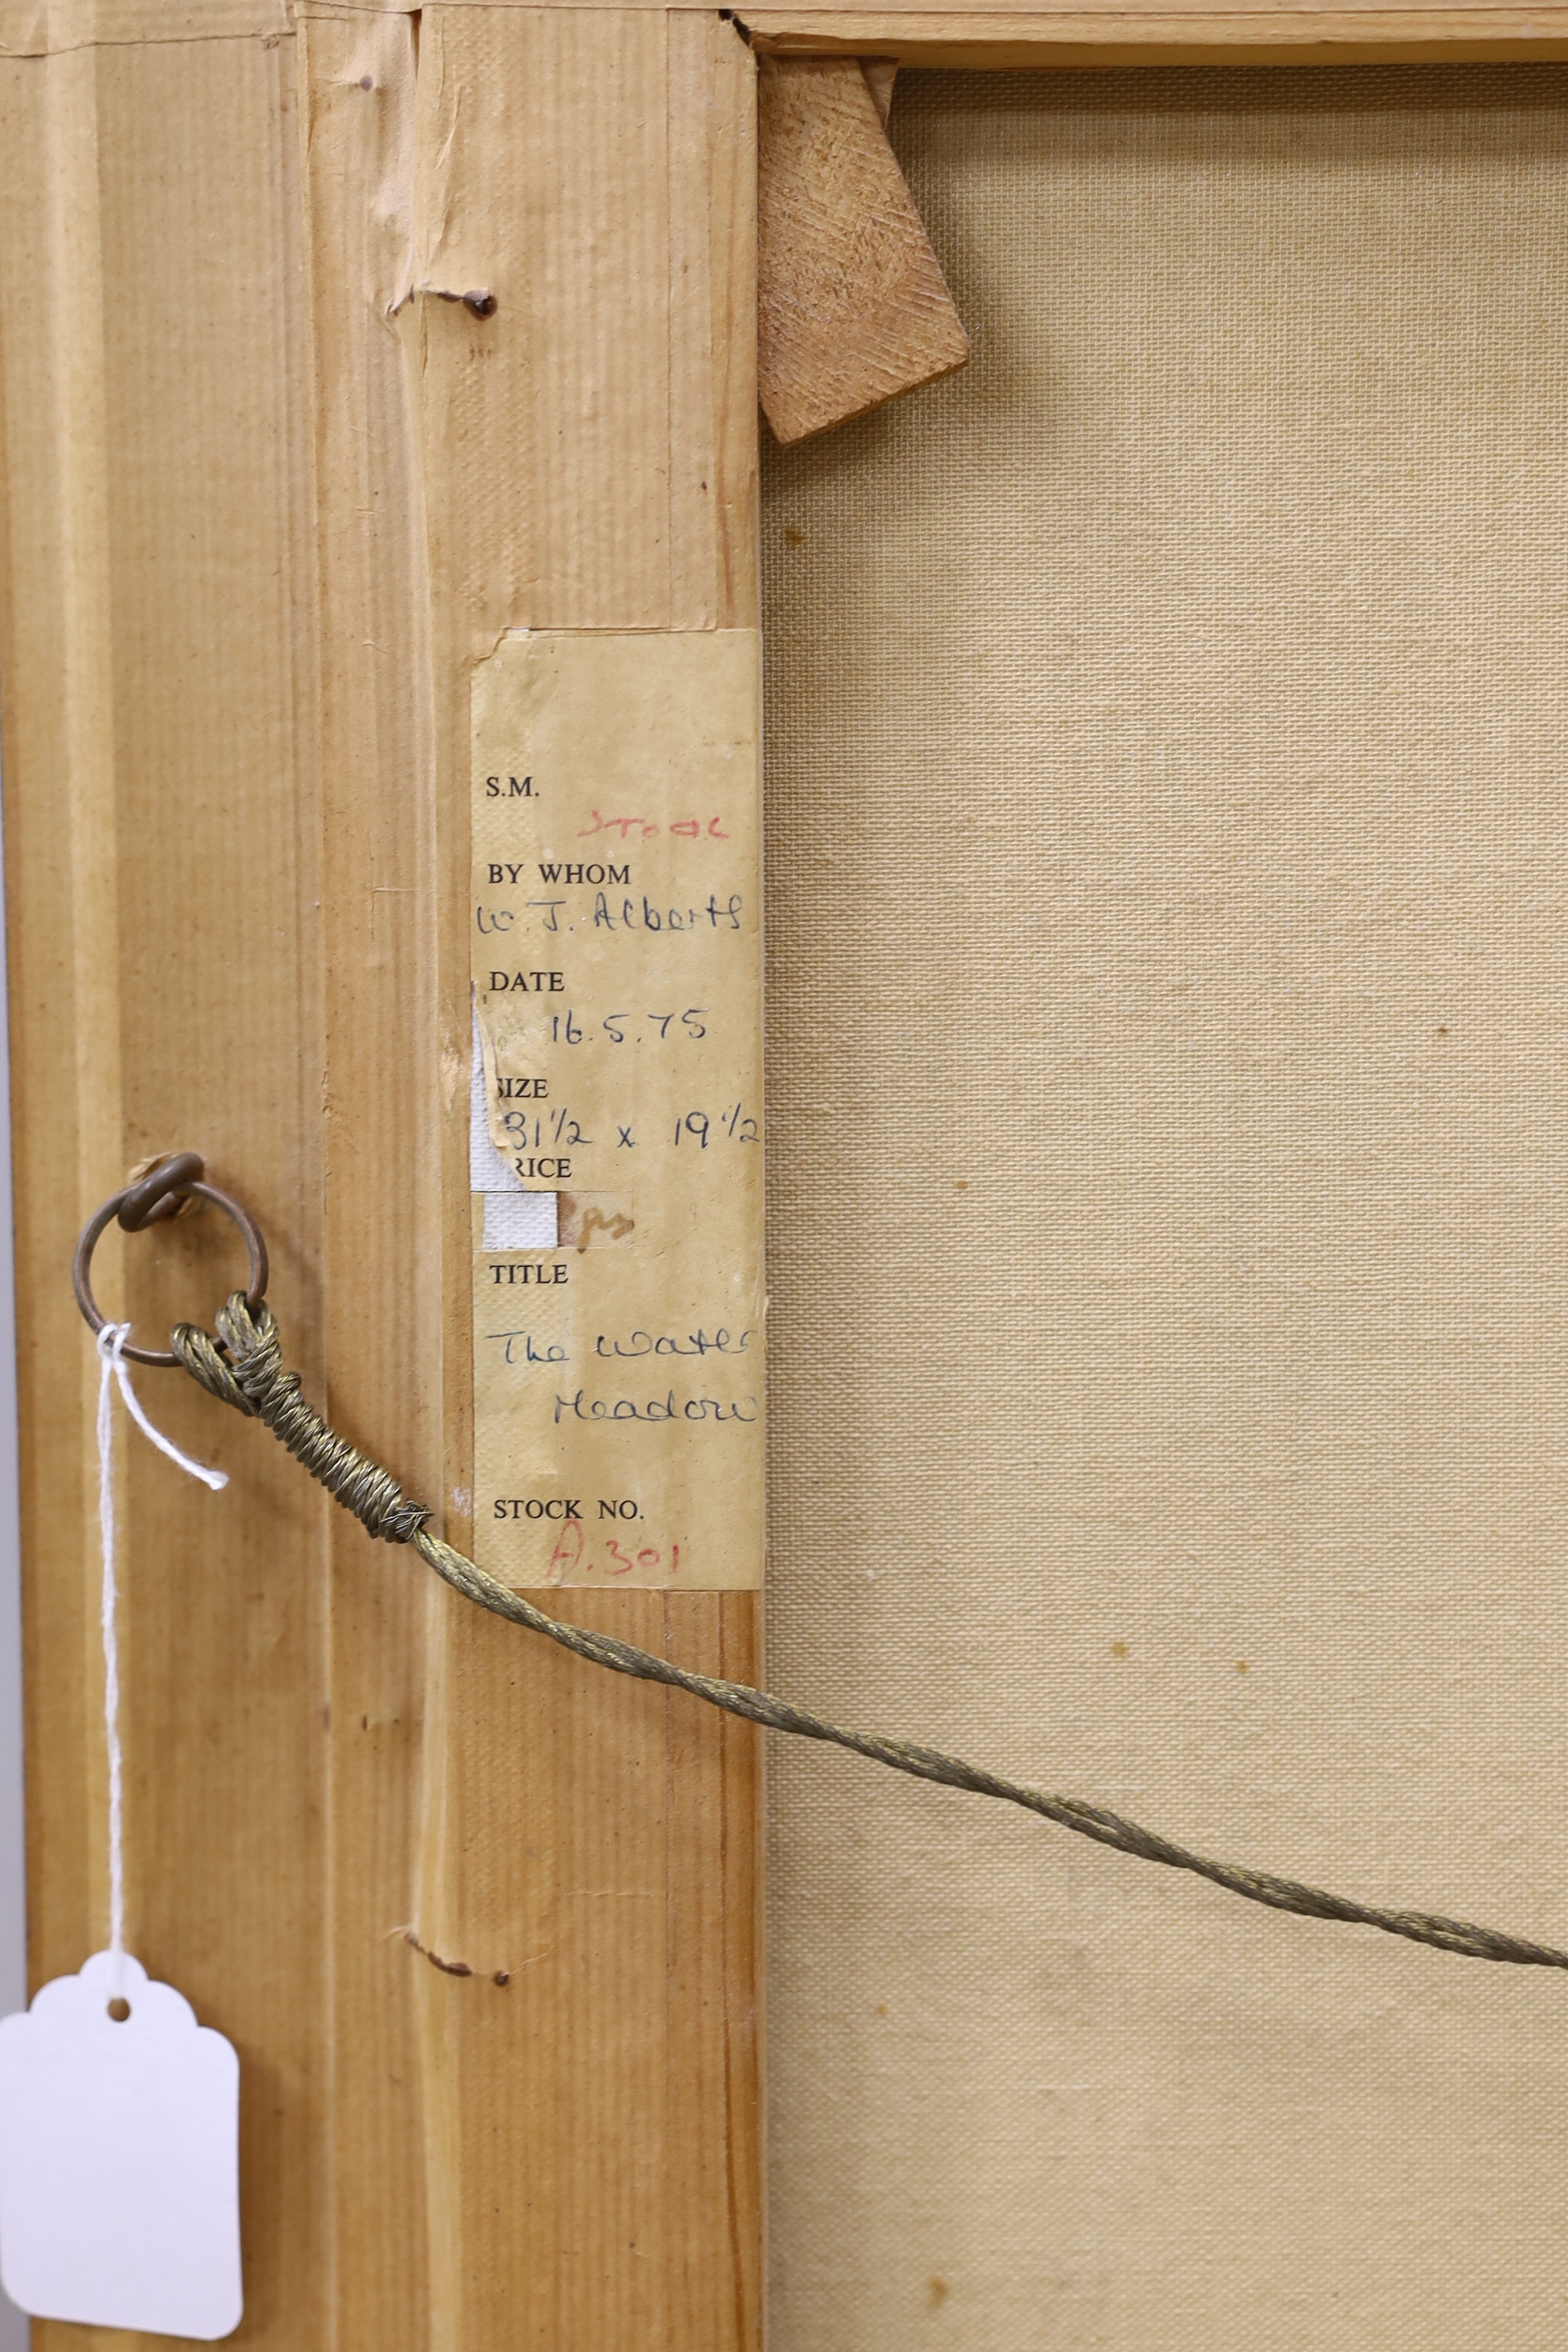 S.M.
STOCK
BY WHOM
W. J. Alberts
DATE
16.5.75
SIZE
31½ x 19½
RICE
TITLE
The Water
Meadow
STOCK NO.
A.301